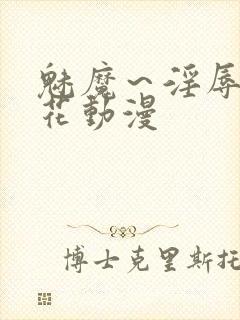 魅魔～淫辱
花動漫
博士克里斯托